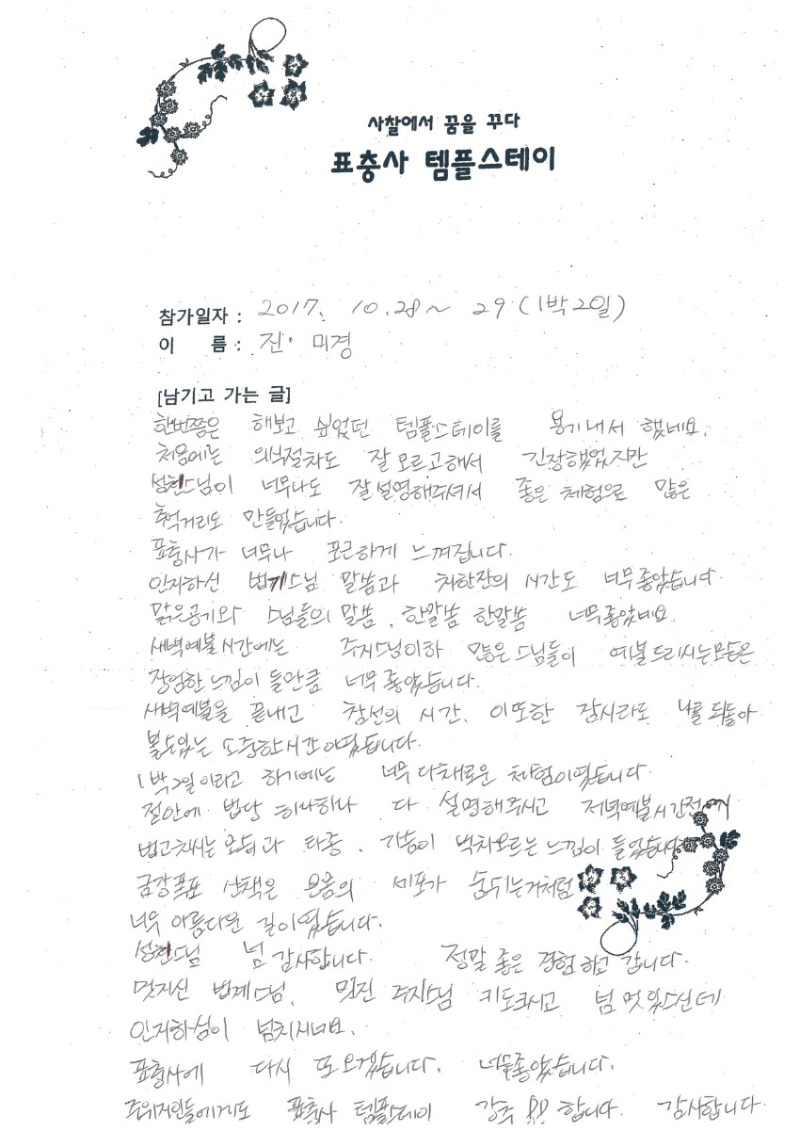 사찰에서 꿈을 꾸다
표충사 템플스테이
참가일자 : 2017. 10. 28 ~ 29 (1박2일)
이 름 : 진 미경
[남기고 가는 글]
한번쯤은 해보고 싶었던 템플스테이를 용기내서 했네요.
처음에는 의식절차도 잘 모르고해서 긴장했었지만
성현스님이 너무나도 잘 설명해주셔서 좋은 체험으로 많은
추억거리도 만들었습니다.
표충사가 너무나 포근하게 느껴집니다.
인자하신 법기스님 말씀과 차한잔의 시간도 너무좋았습니다
맑은공기와 스님들의 말씀, 한말씀 한말씀 너무좋았네요
새벽예불시간에는 주지스님이하 많은스님들이 예불드리시는모습은
장엄한 느낌이 들만큼 너무 좋았습니다.
새벽예불을 끝내고 참선의 시간. 이또한 잠시라도 나를 되돌아
볼수있는 소중한시간이였습니다.
1박2일이라고 하기에는 너무 다채로운 체험이였습니다.
절안에 법당 하나하나 다 설명해주시고 저녁예불시간전에
법고치시는 모습과 타종, 가슴이 벅차오르는 느낌이 들었습니다
금강폭포 산책은 온몸의 세포가 숨쉬는거처럼
너무 아름다운 길이였습니다.
성현스님 넘 감사합니다. 정말 좋은 경험하고 갑니다.
멋지신 법계스님, 멋진 주지스님 키도크시고 넘 멋있으신데
인자하심이 넘치시네요.
표충사에 다시 또 오겠습니다. 너무좋았습니다.
주위지인들에게도 표충사 템플스테이 강추 !! 합니다. 감사합니다.